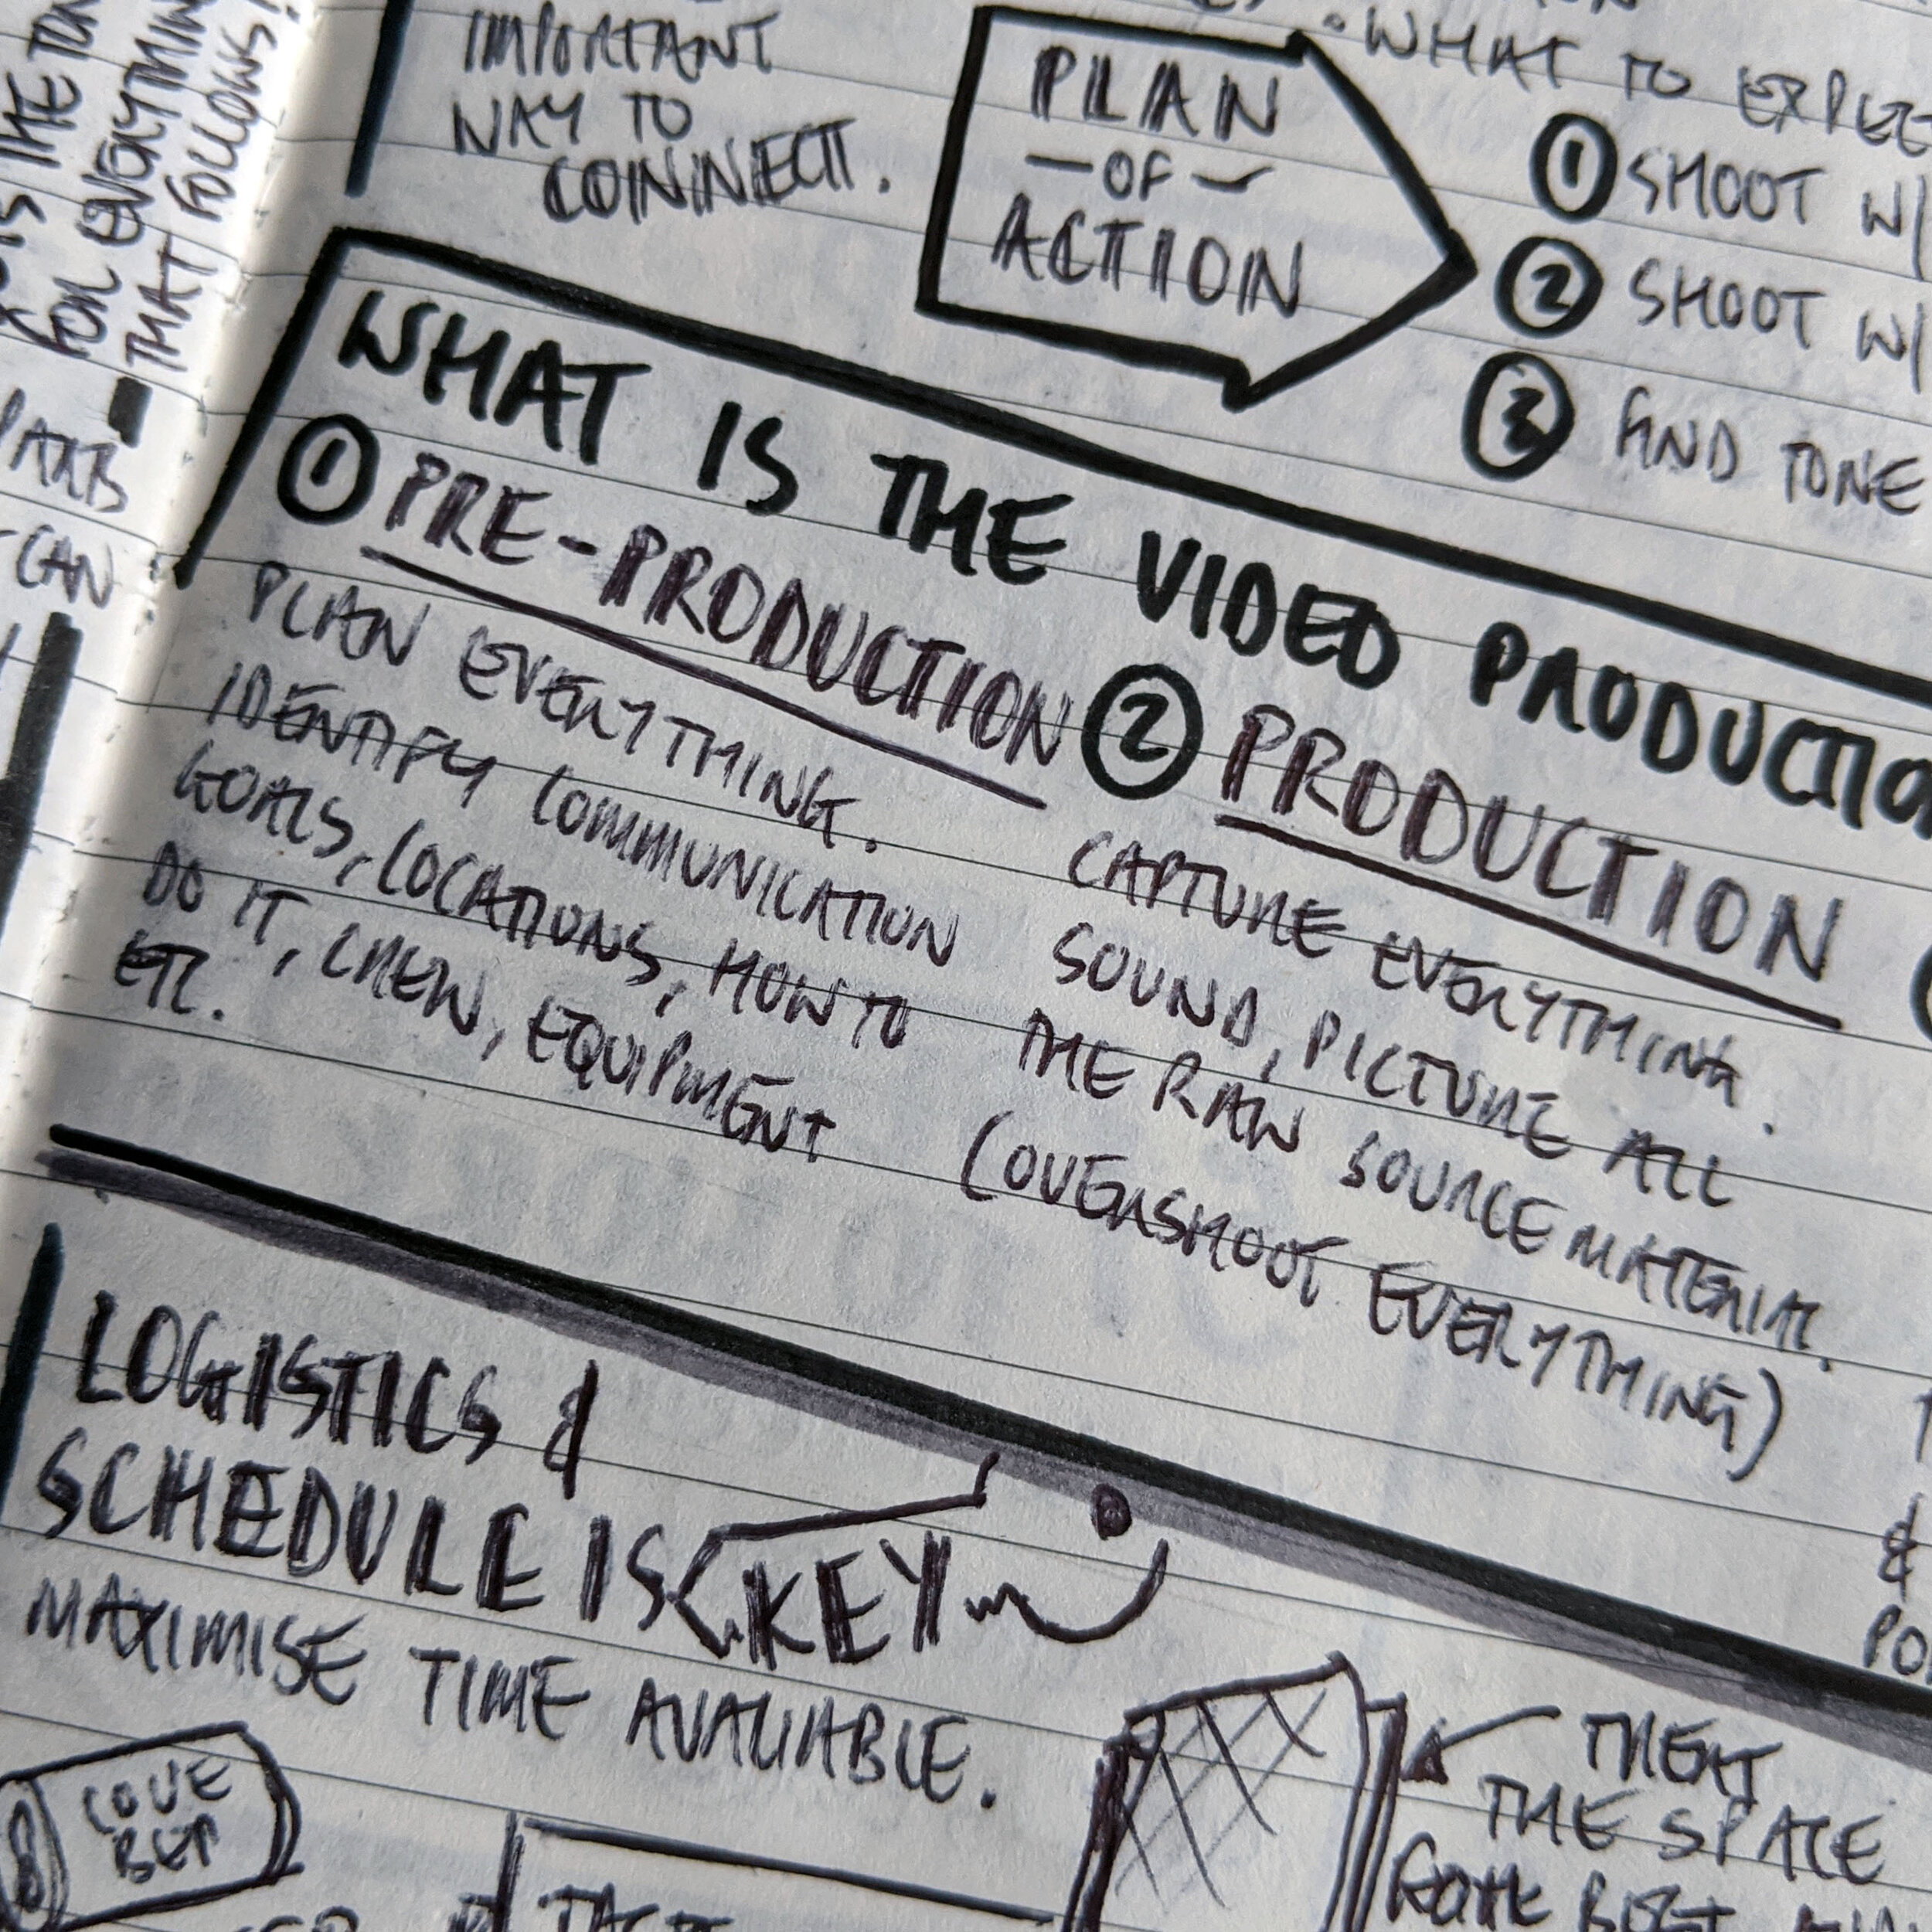 IS THE
FOR EVERYTHING
THAT FOLLOWS!
CAN
IMPORTANT
WAY TO
CONNECT.
PLAN
-OF-
ACTION
• WHAT TO EXPECT
① SHOOT W/
② SHOOT W/
③ FIND TONE
WHAT IS THE VIDEO PRODUCTIO
① PRE-PRODUCTION
PLAN EVERYTHING.
IDENTIFY COMMUNICATION
GOALS, LOCATIONS, HOW TO
DO IT, CREW, EQUIPMENT
ETC.
② PRODUCTION
CAPTURE EVERYTHING.
SOUND, PICTURE ALL
THE RAW SOURCE MATERIAL.
(OVERSHOOT EVERYTHING)
&
PO
LOGISTICS &
SCHEDULE IS KEY
MAXIMISE TIME AVALIABLE.
THE SPACE